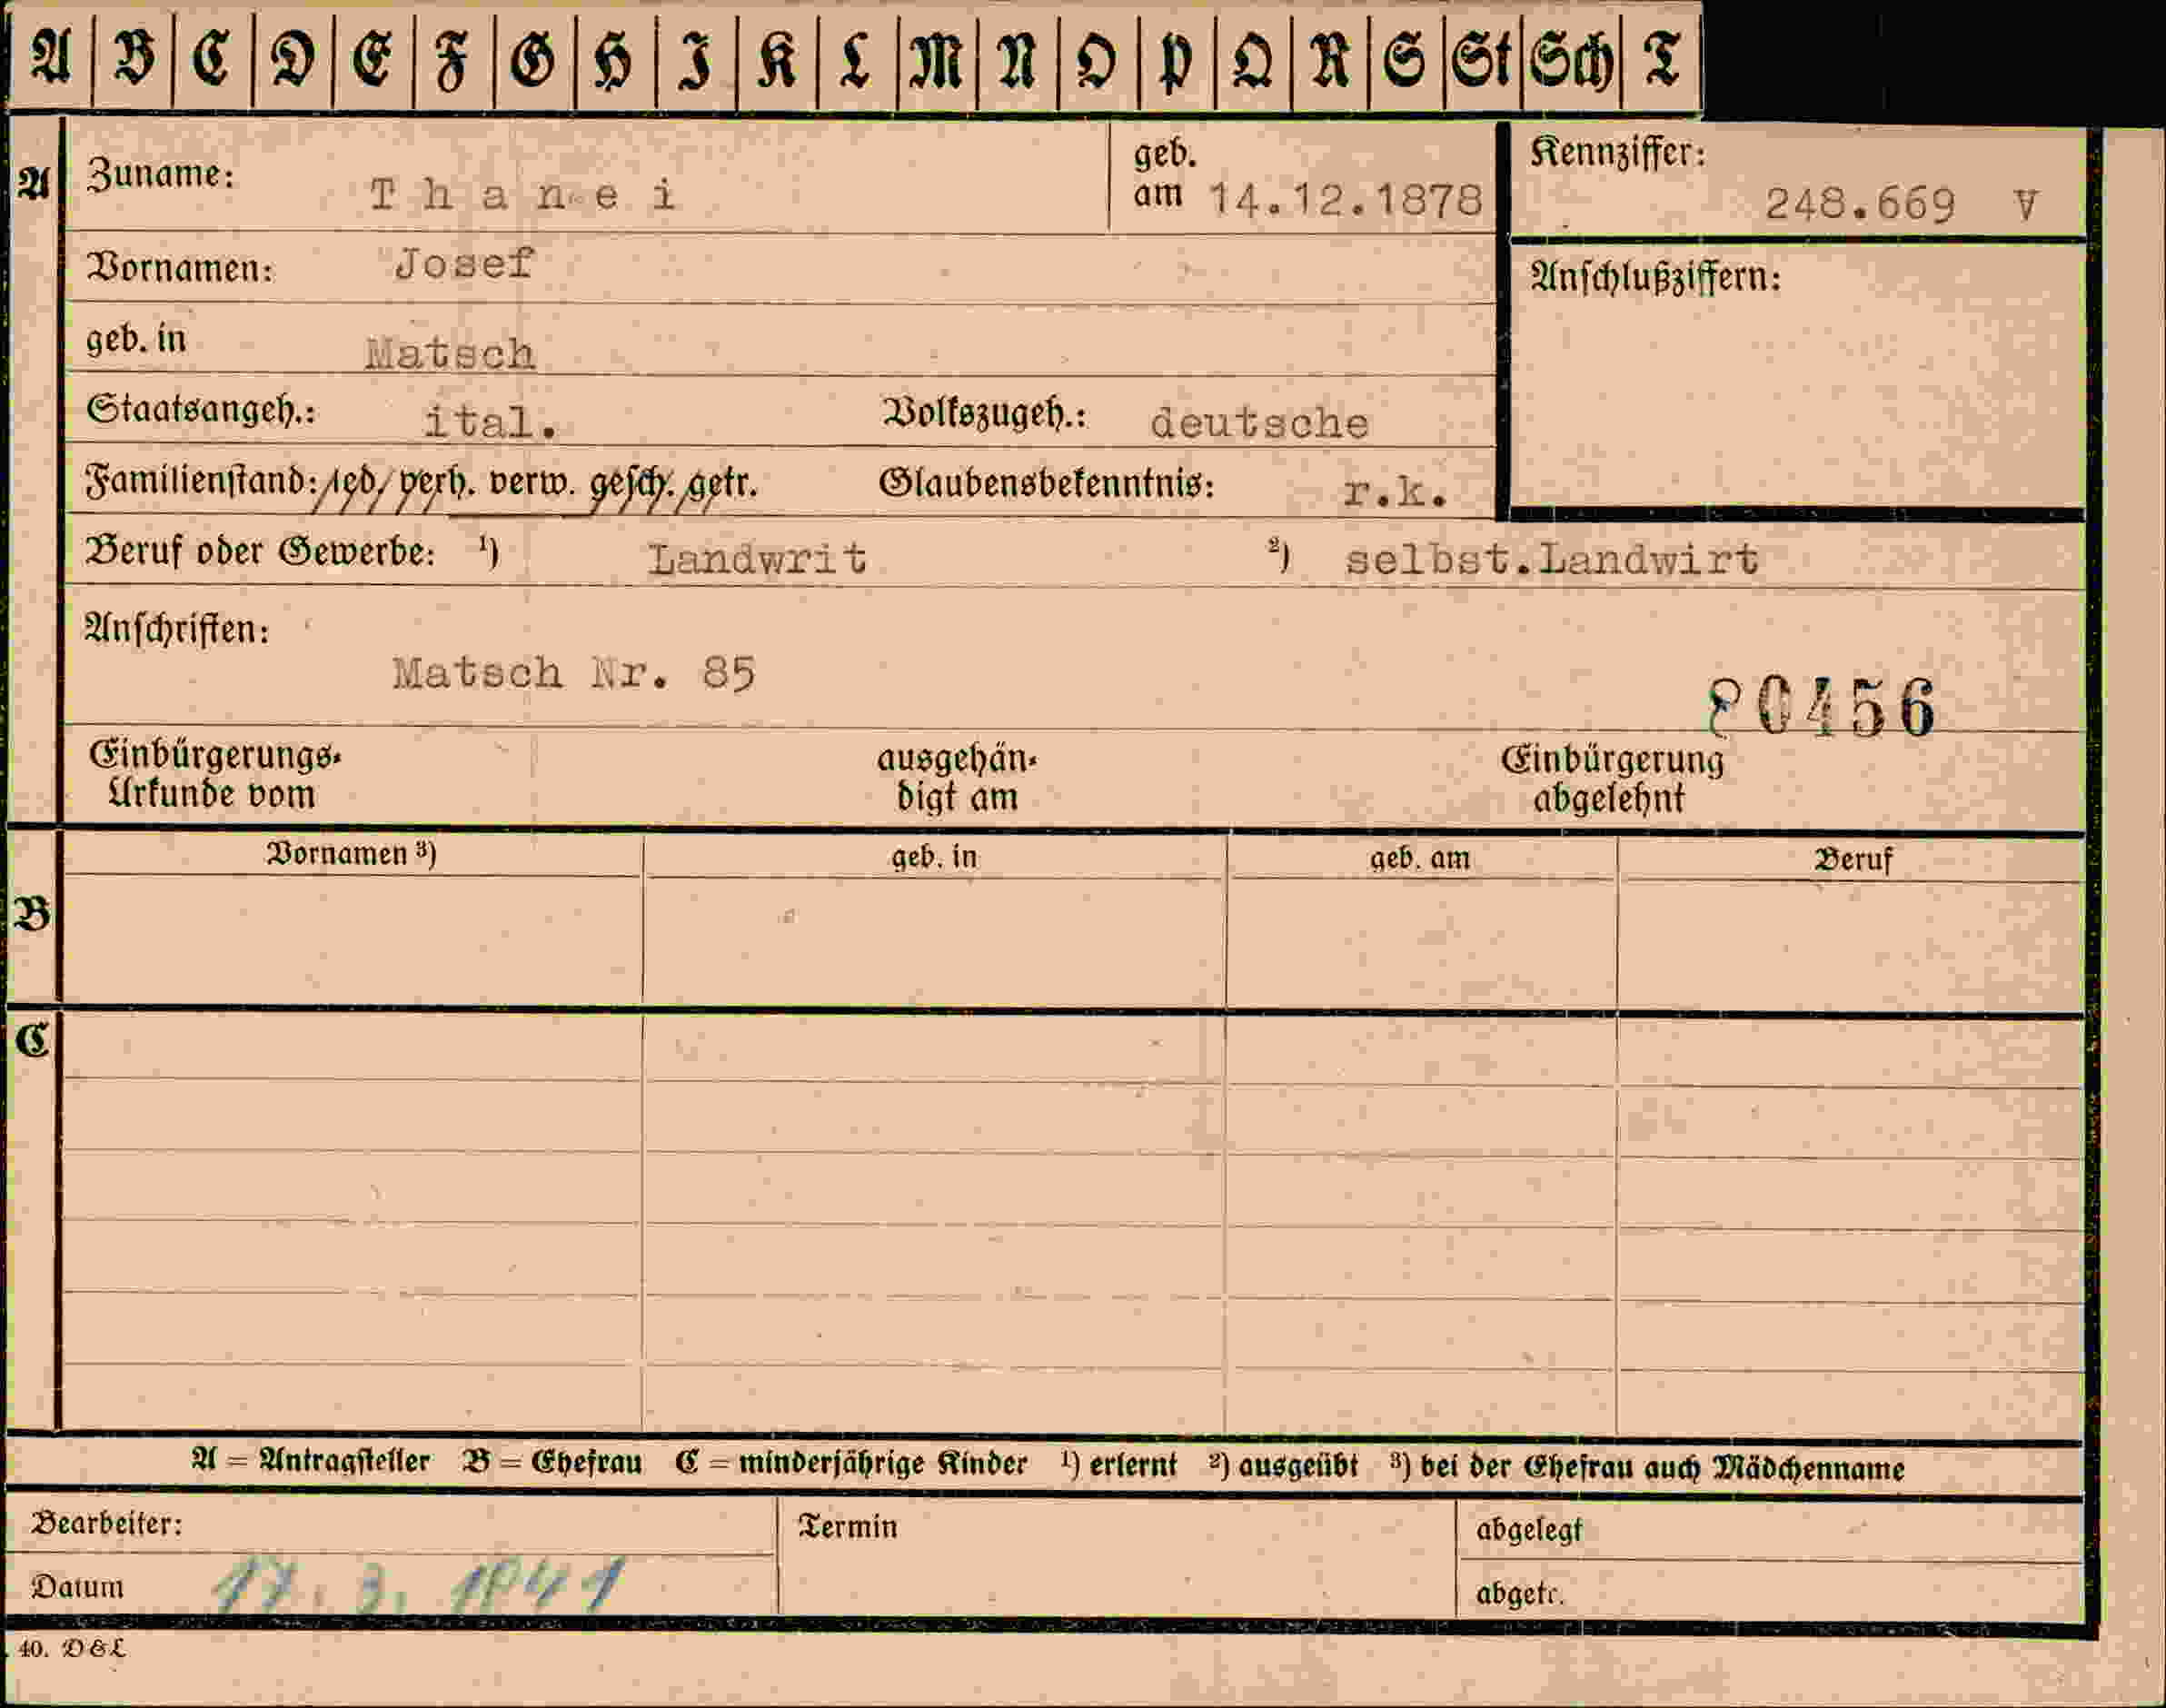 A B C D E F G H I K L M N O P Q R S St Sch T
A Zuname: Thanei geb. am 14.12.1878 Kennziffer: 248.669 V
Vornamen: Josef Anschlußziffern:
geb. in Matsch
Staatsangeh.: ital. Volkszugeh.: deutsche
Familienstand: led. verh. verw. gesch. getr. Glaubensbekenntnis: r.k.
Beruf oder Gewerbe: ¹) Landwrit ²) selbst.Landwirt
Anschriften:
Matsch Nr. 85
80456
Einbürgerungs- ausgehän- Einbürgerung
Urkunde vom digt am abgelehnt
Vornamen ³) geb. in geb. am Beruf
B
C
A = Antragsteller B = Ehefrau C = minderjährige Kinder ¹) erlernt ²) ausgeübt ³) bei der Ehefrau auch Mädchenname
Bearbeiter: Termin abgelegt
Datum 17. 3. 1941 abgetr.
40. D&L